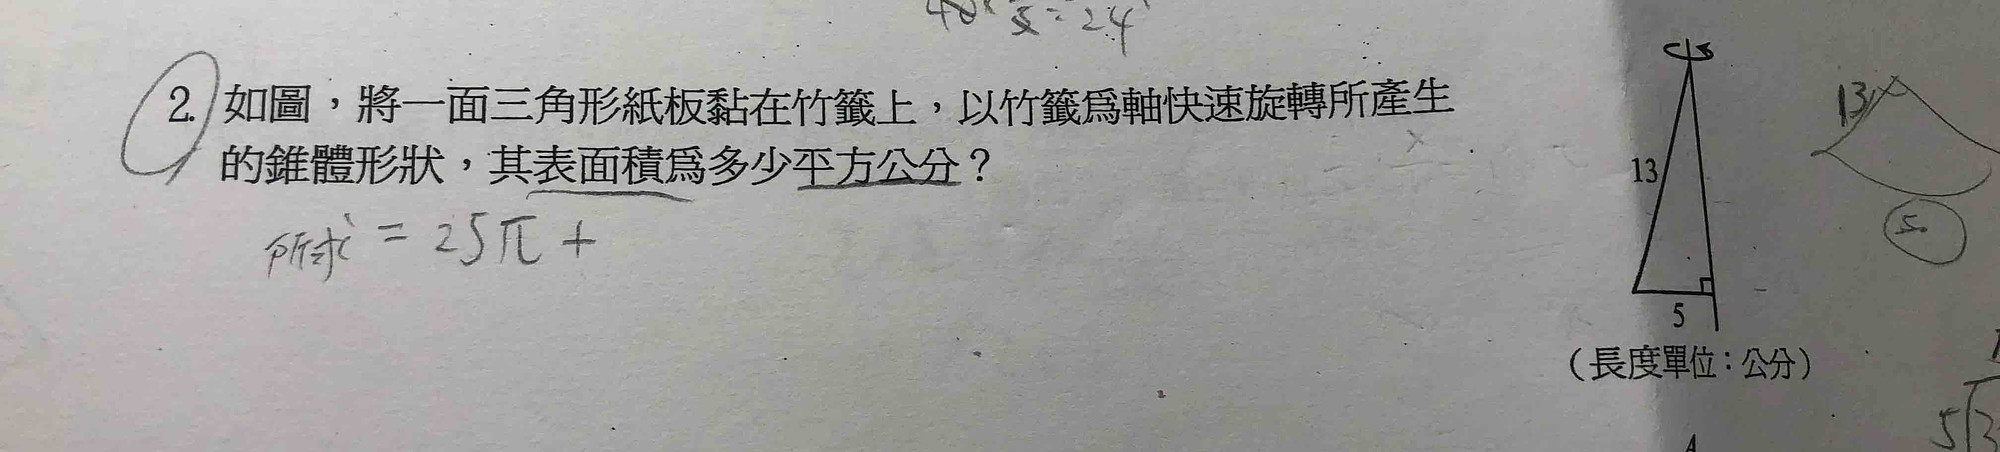 = 24
2. 如圖，將一面三角形紙板黏在竹籤上，以竹籤爲軸快速旋轉所產生
的錐體形狀，其表面積爲多少平方公分？
所求 = 25π +
13
5
（長度單位：公分）
13
5